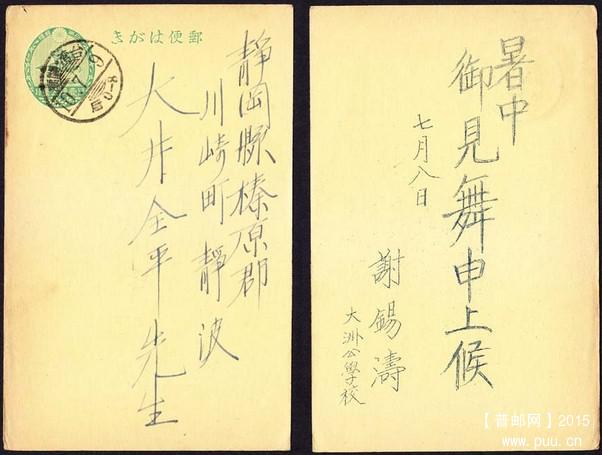 郵便はがき
静岡縣榛原郡
川崎町靜波
大井全平先生
暑中
御見舞申上候
七月八日
謝錫濤
大洲公學校
【普邮网】2015
www.puu.cn